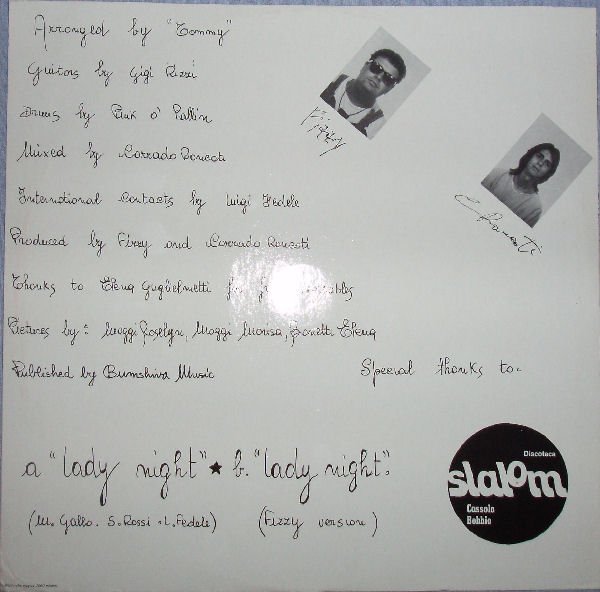 Arranged by "Tommy"
Guitars by Gigi Rizzi
Drums by Puk o' Pallin
Fizzy
Mixed by Corrado Boncoti
C. Foncoti
International Contacts by Luigi Fedele
Produced by Fizzy and Corrado Foncoti
Thanks to Elena Guglielmetti for
Pictures by: Maggi Roselyn, Maggi Monica, Bonetti Elena
Published by Bumshiva Music
Special thanks to.
Discoteca
slalom
Cassolo
Bobbio
a "lady night" ★ b. "lady night".
(M. Gallo. S. Rossi. L. Fedele) (Fizzy version)